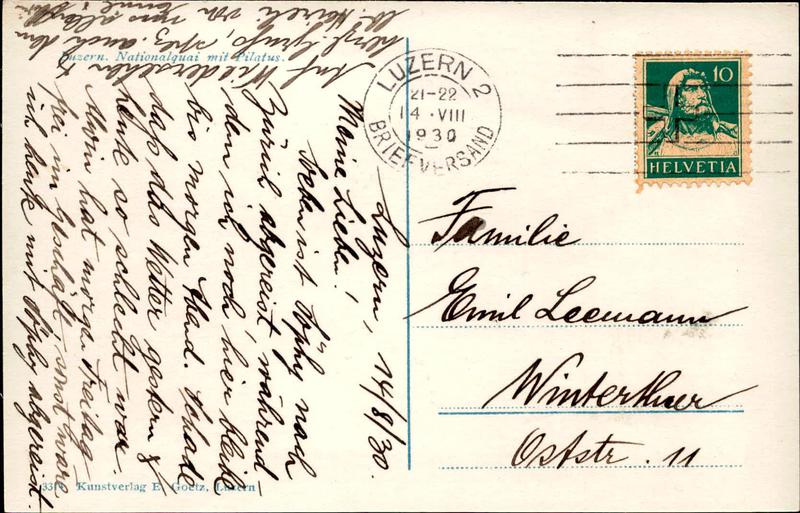 Luzern, 14/8/30.
Meine Lieben!
Soeben ist Sophy nach
Zürich abgereist, während
dem ich noch hier bleibe
bis morgen Abend. Schade
daß das Wetter gestern &
heute so schlecht war.
Alwin hat morgen Freitag
frei im Geschäft, sonst wäre
ich heute mit Sophy abgereist.
Auf Wiedersehen &
herzl. Grüße, auch dem
von
Luzern. Nationalquai mit Pilatus.
33 Kunstverlag E. Goetz, Luzern
LUZERN 2
21-22
14.VIII
1930
BRIEFVERSAND
10
HELVETIA
Familie
Emil Leemann
Winterthur
Oststr. 11